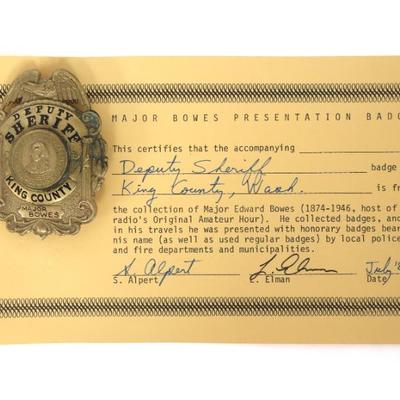 DEPUTY
SHERIFF
KING COUNTY
MAJOR
BOWES
MAJOR BOWES PRESENTATION BADG
This certifies that the accompanying
Deputy Sheriff badge
King County, Wash. is fr
the collection of Major Edward Bowes (1874-1946, host of
radio's Original Amateur Hour). He collected badges, and
in his travels he was presented with honorary badges bear
his name (as well as used regular badges) by local police
and fire departments and municipalities.
S. Alpert L. Elman July '8
S. Alpert L. Elman Date